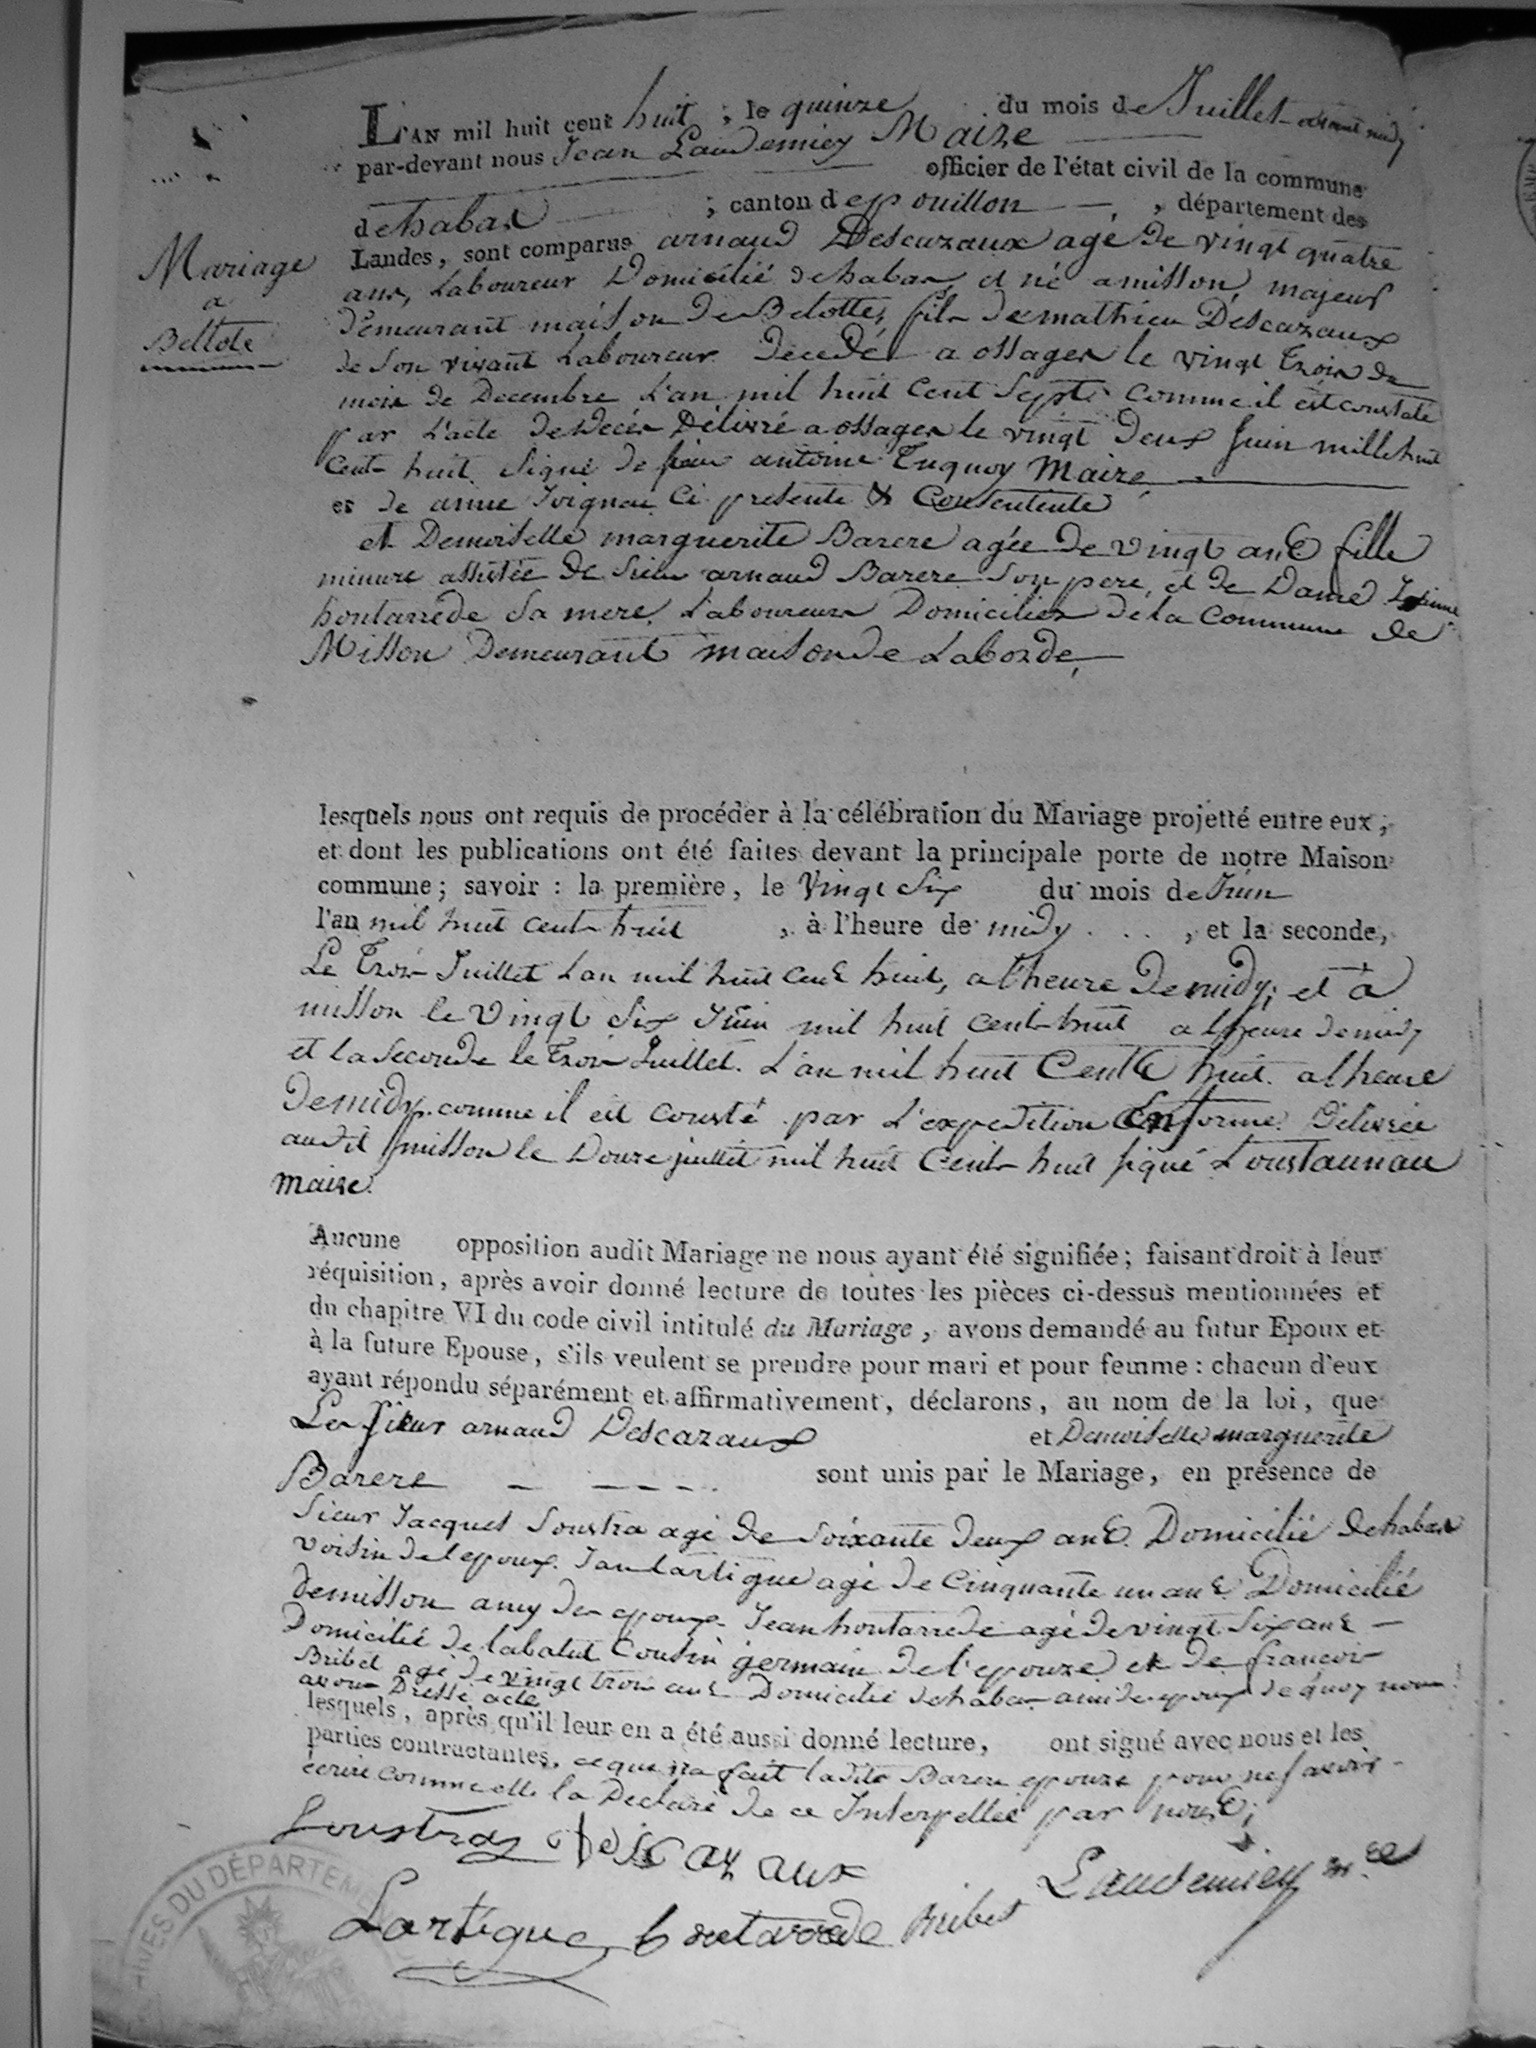 L'AN mil huit cent huit, le quinze du mois de Juillet avant midy
par-devant nous Jean Laudemiey Maire
officier de l'état civil de la commune
de habas ; canton de pouillon , département des
Landes, sont comparus arnaud Descazaux agé de vingt quatre
ans, Laboureur Domicilié de habas, et né a misson, majeur
Mariage
a
Bellote
demeurant maison de Belotte, fils de mathieu Descazaux
de son vivant Laboureur decedé a ossages le vingt trois du
mois de Decembre L'an mil huit cent sept, comme il est constaté
par L'acte de decés Délivré a ossages le vingt deux Juin mille huit
cent huit signé de sieur antoine Tuquoy Maire,
et de anne Joignau Ci presente & Consentente
et Demoiselle marguerite Barere agée de vingt ans fille
minure assistée de sieur arnaud Barere son pere, et de Dame
hontarrede sa mere, Laboureurs Domiciliés de la commune de
Misson Demeurant maison de Laborde,
lesquels nous ont requis de procéder à la célébration du Mariage projetté entre eux,
et dont les publications ont été faites devant la principale porte de notre Maison
commune; savoir : la première, le Vingt Six du mois de Juin
l'an mil huit cent huit , à l'heure de midy . . . , et la seconde,
Le trois Juillet L'an mil huit cent huit, a l'heure de midy; et à
misson le vingt six Juin mil huit cent huit a l'heure de midy
et la seconde le trois Juillet L'an mil huit cent huit a l'heure
de midy comme il est consté par L'expedition Enforme Délivrée
audit misson le Douze juillet mil huit cent huit signé Loustaunau
maire.
Aucune opposition audit Mariage ne nous ayant été signifiée; faisant droit à leur
réquisition, après avoir donné lecture de toutes les pièces ci-dessus mentionnées et
du chapitre VI du code civil intitulé du Mariage, avons demandé au futur Epoux et
à la future Epouse, s'ils veulent se prendre pour mari et pour femme : chacun d'eux
ayant répondu séparément et affirmativement, déclarons, au nom de la loi, que
Le sieur arnaud Descazaux et Demoiselle marguerite
Barere sont unis par le Mariage, en présence de
Sieur Jacques Soustra agé de soixante deux ans Domicilié de habas
voisin de l'epoux. Jan Lartigue agé de Cinquante un ans Domicilié
de misson amy des epoux Jean hontarrede agé de vingt six ans
Domicilié de labatut Cousin germain de l'epouze et de francois
Bribet agé de vingt trois ans Domicilié de habas ami des epoux de quoy nous
avons Dressé acte
lesquels, après qu'il leur en a été aussi donné lecture, ont signé avec nous et les
parties contractantes, ce que n'a fait ladite Barere epouze pour ne savoir
écrire comme elle la Declaré de ce Interpellée par nous;
Soustra Descazaux
Laudemiey m.re
Lartigue hontarrede Bribet